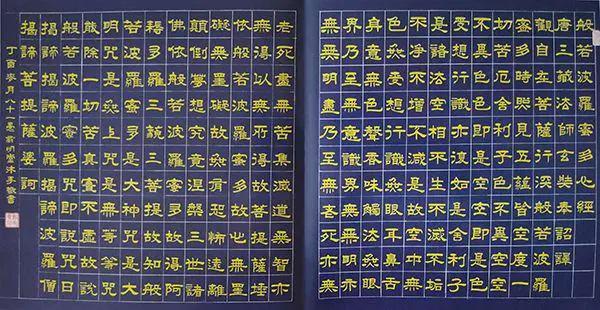 般若波羅蜜多心經
唐三藏法師玄奘奉詔譯
觀自在菩薩行深般若波羅
蜜多時照見五蘊皆空度一
切苦厄舍利子色不異空空
不異色色即是空空即是色
受想行識亦復如是舍利子
是諸法空相不生不滅不垢
不淨不增不減是故空中無
色無受想行識無眼耳鼻舌
身意無色聲香味觸法無眼
界乃至無意識界無無明亦
無無明盡乃至無老死亦無
老死盡無苦集滅道無智亦
無得以無所得故菩提薩埵
依般若波羅蜜多故心無罣
礙無罣礙故無有恐怖遠離
顛倒夢想究竟涅槃三世諸
佛依般若波羅蜜多故得阿
耨多羅三藐三菩提故知般
若波羅蜜多是大神咒是大
明咒是無上咒是無等等咒
能除一切苦真實不虛故說
般若波羅蜜多咒即說咒曰
揭諦揭諦波羅揭諦波羅僧
揭諦菩提薩婆訶
丁酉月八十一叟明崇沐手敬書